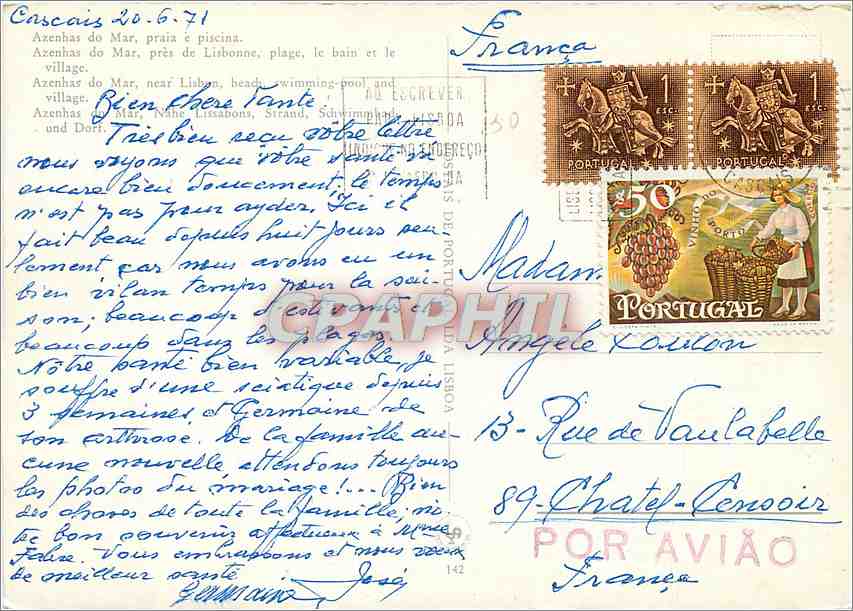 Cascais 20-6-71
Azenhas do Mar, praia e piscina.
Azenhas do Mar, près de Lisbonne, plage, le bain et le
village.
Azenhas do Mar, near Lisbon, beach, swimming-pool and
village.
Azenhas do Mar, Nähe Lissabons, Strand, Schwimm
und Dorf.
Bien chere Tante,
Très bien reçu votre lettre
nous voyons que vôtre santé va
encore bien doucement; le temps
n'est pas pour ayder, Ici il
fait beau depuis huit jours seu
lement car nous avons eu un
bien vilan temps pour la sai-
son; beaucoup d'estivants et
beaucoup dans les plages
Nôtre santé bien variable, je
souffre d'une sciatique depuis
3 semaines et Germaine de
son arthrose. De la famille au-
cune nouvelle attendons toujours
les photos du mariage!... Bien
des choses de toute la famille, no
tre bon souvenir affectueux à Mme
Fabre. Vous embrassons et nous vous
de meilleur santé
Germaine José
França
AO ESCREVER
PARA LISBOA
INDIQUE NO ENDEREÇO
50
1
ESC.
PORTUGAL
1
ESC.
PORTUGAL
$50
VINHO DO PORTO
CORREIOS
PORTUGAL
Madam
Angele
13- Rue de Vaulabelle
89- Chatel-Censoir
França
POR AVIÃO
LISBOA
142
CPAPHIL